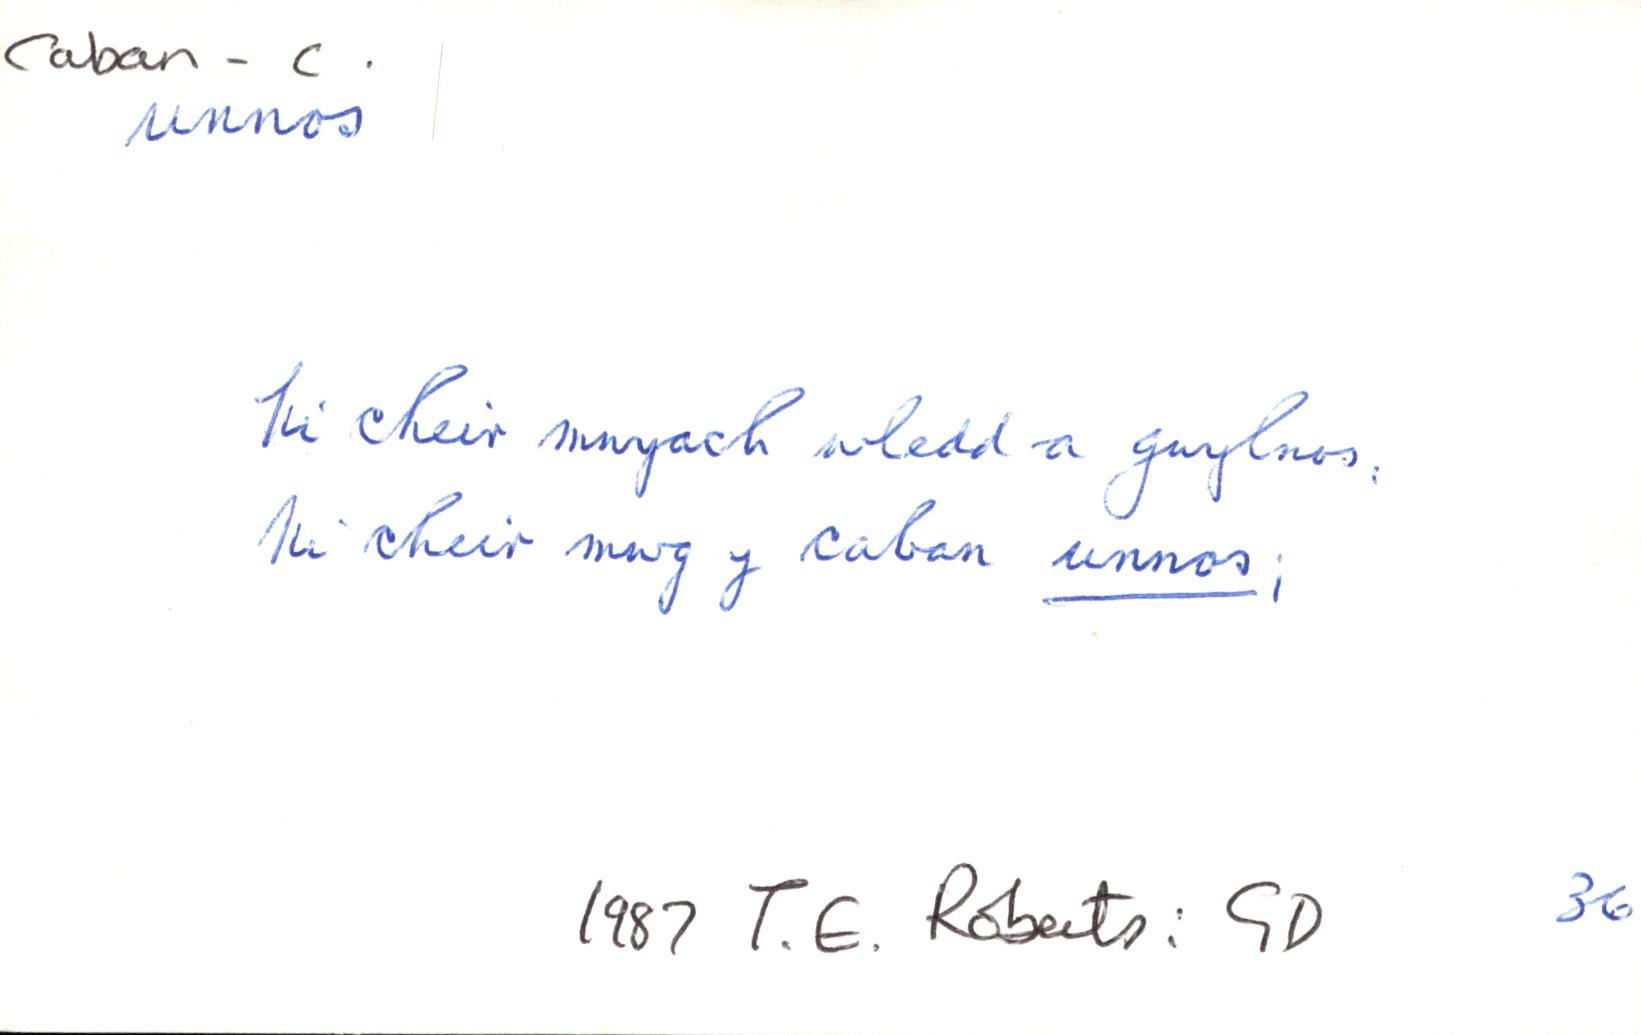 Caban - c.
unnos
Ni cheir mwyach wledd a gwylnos,
Ni cheir mwg y caban unnos;
1987 T.E. Roberts: GD 36